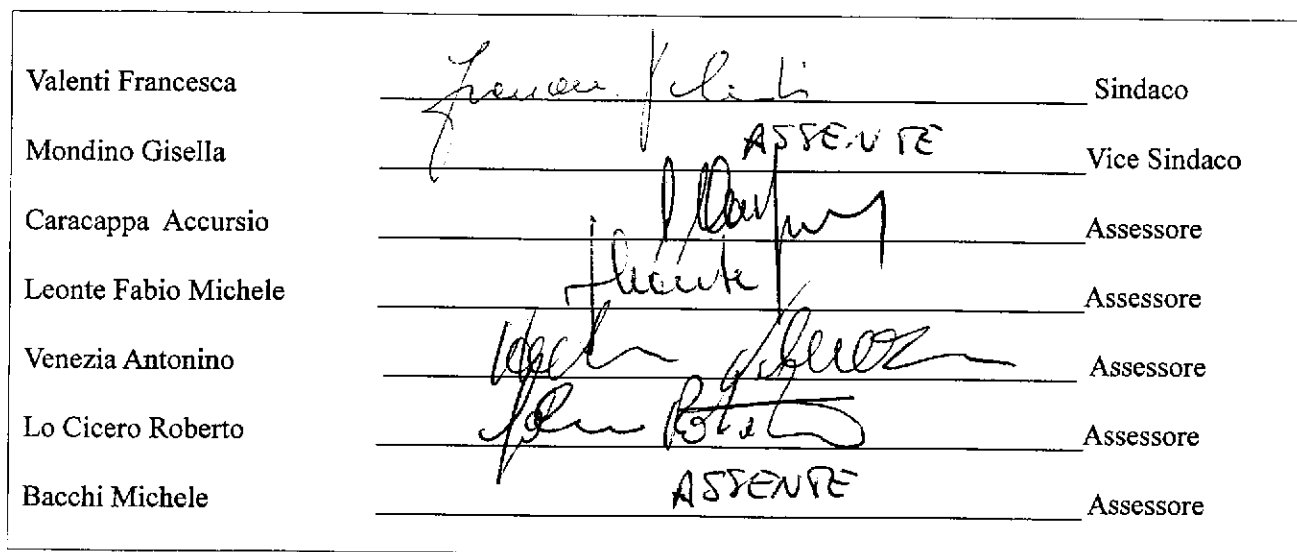 Valenti Francesca Francesca Valenti Sindaco
Mondino Gisella ASSENTE Vice Sindaco
Caracappa Accursio Assessore
Leonte Fabio Michele Leonte Assessore
Venezia Antonino Assessore
Lo Cicero Roberto Assessore
Bacchi Michele ASSENTE Assessore